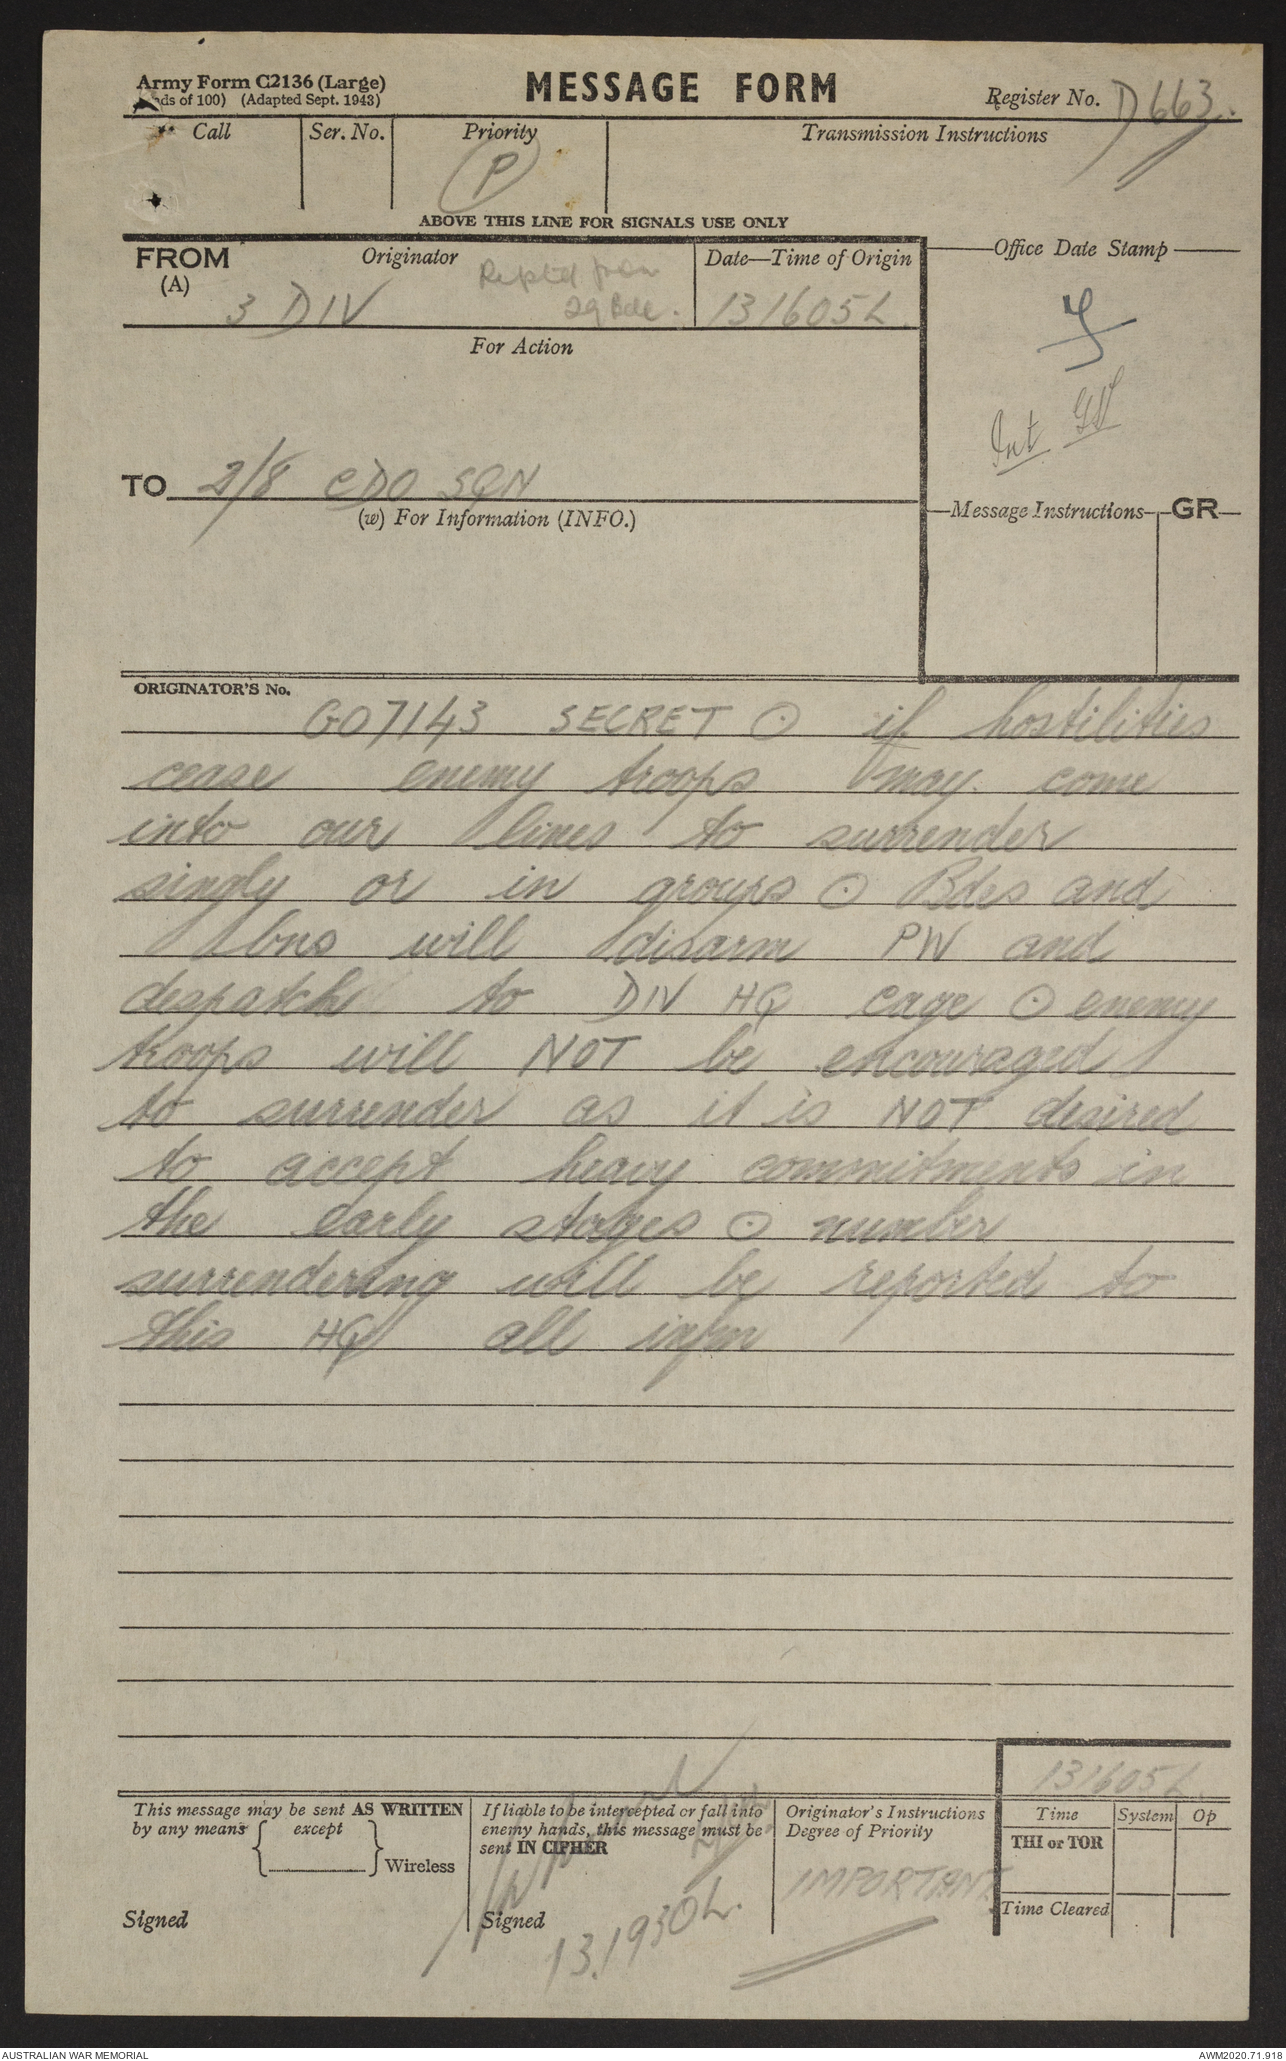 Army Form C2136 (Large)
ds of 100) (Adapted Sept. 1943)
MESSAGE FORM
Register No. D663.
Call
Ser. No.
Priority
P
Transmission Instructions
ABOVE THIS LINE FOR SIGNALS USE ONLY
FROM
(A)
Originator
3 DIV
from
29 Bde.
Date—Time of Origin
131605L
Office Date Stamp
Int
For Action
TO 2/8 CDO SQN
(w) For Information (INFO.)
Message Instructions
GR
ORIGINATOR'S No.
GO7143 SECRET ⊙ if hostilities
cease enemy troops may come
into our lines to surrender
singly or in groups ⊙ Bdes and
bns will disarm PW and
despatch to DIV HQ cage ⊙ enemy
troops will NOT be encouraged
to surrender as it is NOT desired
to accept heavy commitments in
the early stages ⊙ number
surrendering will be reported to
this HQ all infm
131605L
This message may be sent AS WRITTEN
by any means except
Wireless
Signed
If liable to be intercepted or fall into
enemy hands, this message must be
sent IN CIPHER
Signed
13.1930L.
Originator's Instructions
Degree of Priority
IMPORTANT
Time
System
Op
THI or TOR
Time Cleared
AUSTRALIAN WAR MEMORIAL
AWM2020.71.918